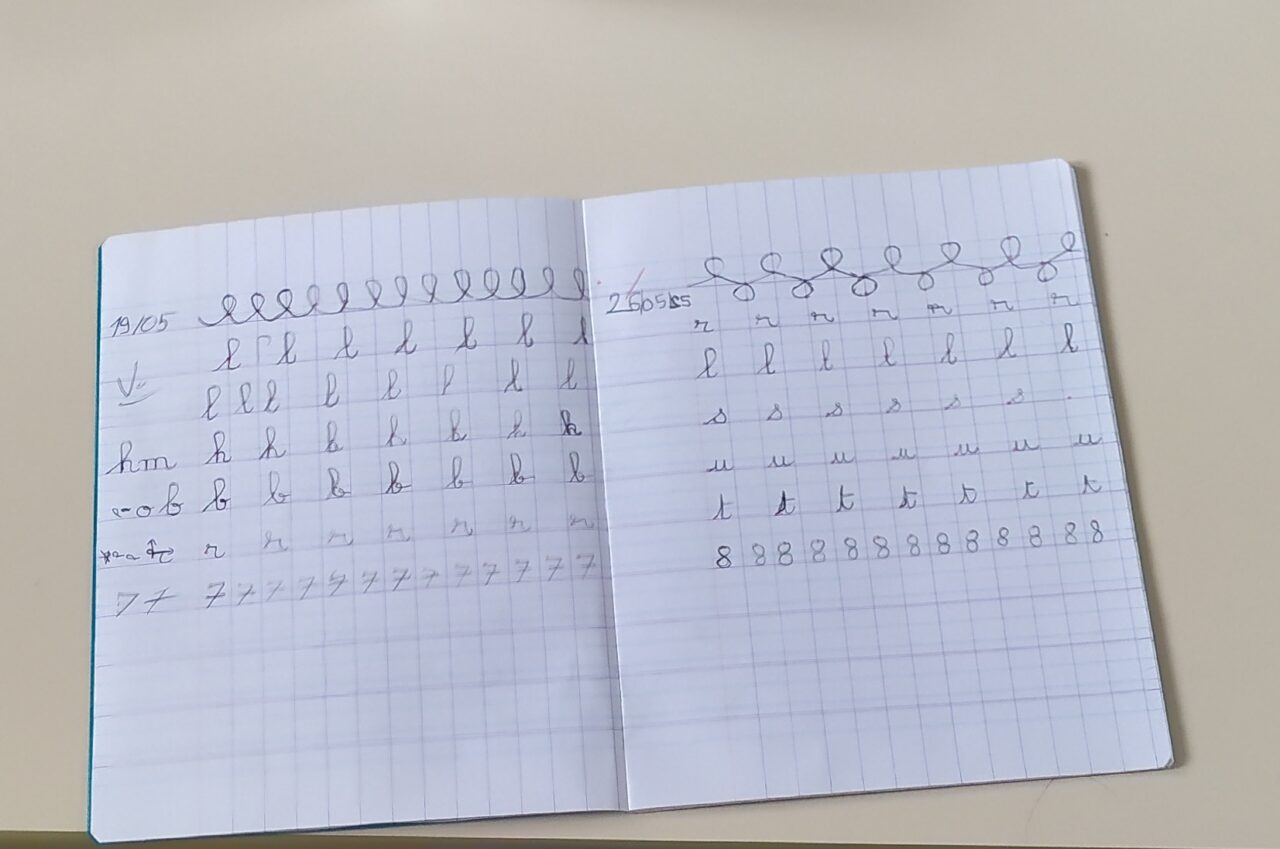 19/05
l l l l l l l
l l l l l l l l
hm h h h h h h h
b b b b b b b b
r r r r r r r
77 7 7 7 7 7 7 7 7 7 7 7 7 7
r r r r r r r
l l l l l l l
s s s s s s
u u u u u u u
t t t t t t t
8 8 8 8 8 8 8 8 8 8 8 8 8